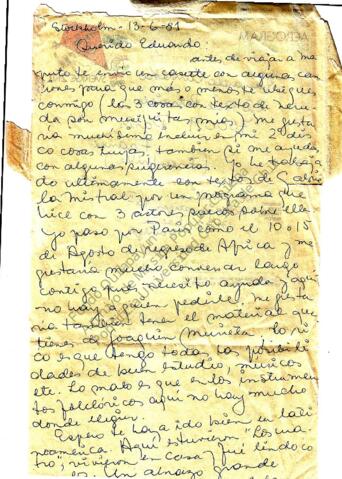 Stockholm - 13-6-81
Querido Eduardo:
antes de viajar a Ma
puto te envío un casete con algunas can
ciones para que más o menos te ubiques
conmigo (las 3 cosas con texto de Neru
da son musiquitas mías) Me gusta
ría muchísimo incluir en mi 2º dis
co cosas tuyas, también si me ayudas
con algunas sugerencias. Yo he trabaja
do últimamente con textos de Gabrie
la Mistral por un programa que
hice con 3 actores suecos sobre ella
Yo paso por París como el 10 o 15
de Agosto de regreso de Africa y me
gustaría mucho conversar largo
contigo pues necesito ayuda y aquí
no hay a quien pedirle. Me gusta
ría también tener el material que
tienes de Joaquín Murieta. Lo ri
co es que tengo todas las posibili
dades de buen estudio, músicos
etc. Lo malo es que en los instrumen
tos folclóricos aquí no hay mucho
donde elegir.
Espero te haya ido bien en lati
noamérica. Aquí estuvieron "Los
vivieron en casa ¡qué lindo
Un abrazo grande